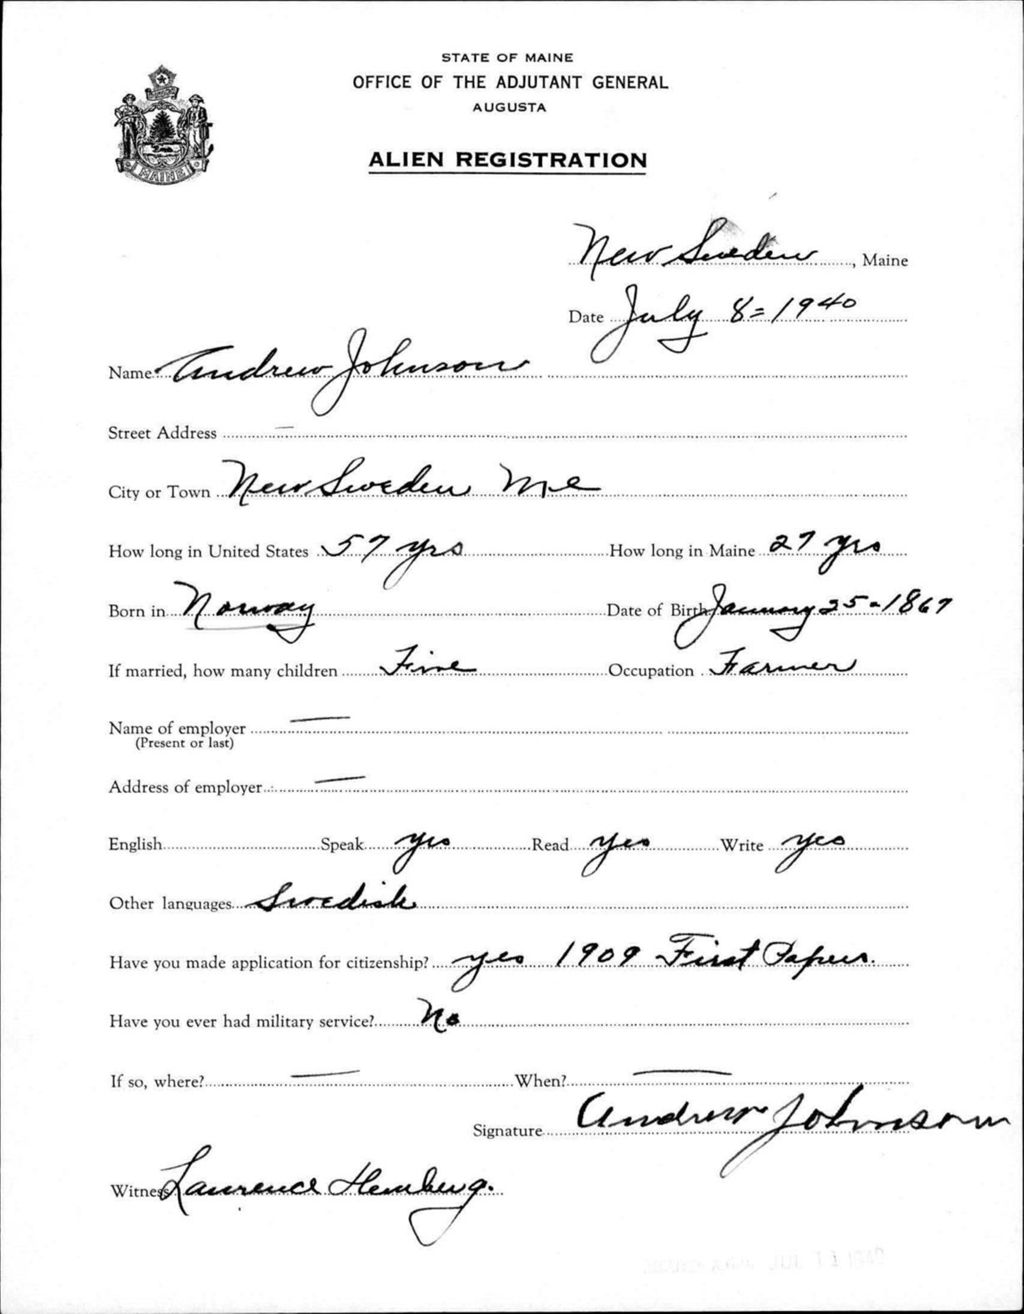 STATE OF MAINE
OFFICE OF THE ADJUTANT GENERAL
AUGUSTA
MAINE
ALIEN REGISTRATION
New Sweden, Maine
Date July 8=1940
Name Andrew Johnson
Street Address —
City or Town New Sweden Me
How long in United States 57 yrs How long in Maine 27 yrs
Born in Norway Date of Birth January 25-1867
If married, how many children Five Occupation Farmer
Name of employer —
(Present or last)
Address of employer —
English Speak yes Read yes Write yes
Other languages Swedish
Have you made application for citizenship? yes 1909 First Papers.
Have you ever had military service? No
If so, where? — When? —
Signature Andrew Johnson
Witness Laurence Hemberg.
JUL 11 1940